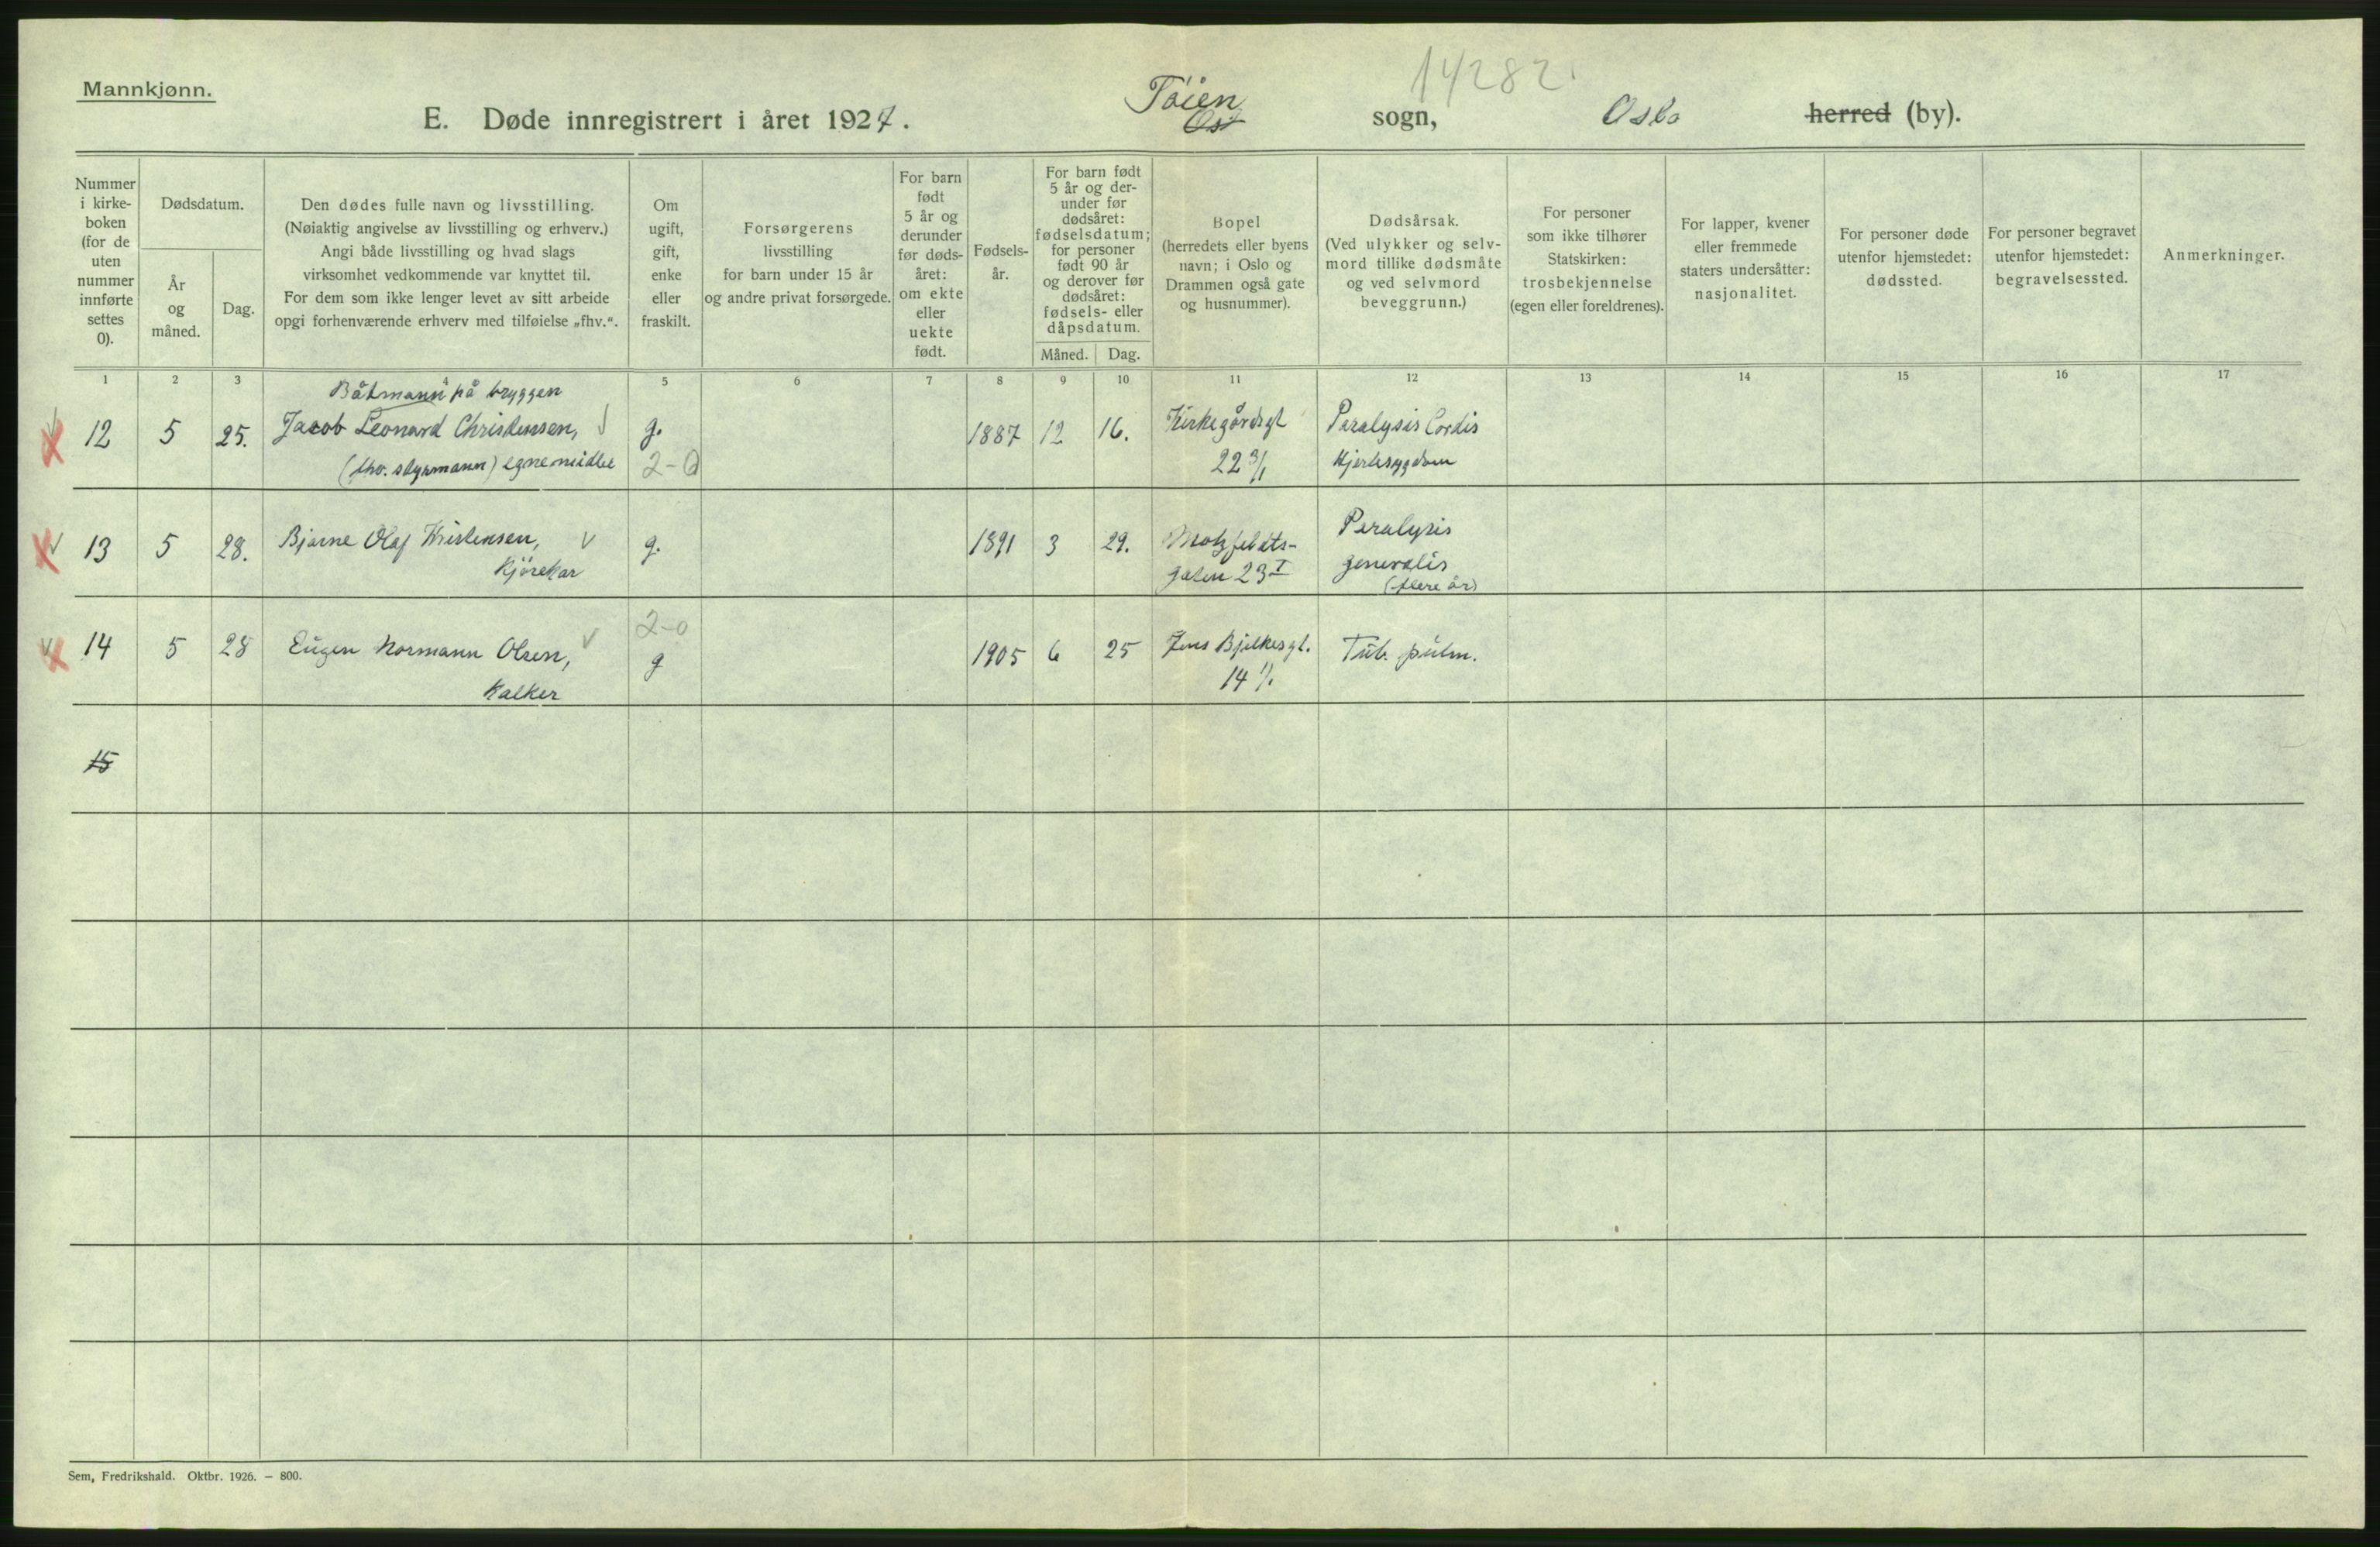 Mannkjønn.
14282
E. Døde innregistrert i året 1927. Tøien sogn, Oslo herred (by).
Øst
Nummer i kirke-boken (for de uten nummer innførte settes 0).
Dødsdatum.
År og måned.
Dag.
Den dødes fulle navn og livsstilling.
(Nøiaktig angivelse av livsstilling og erhverv.)
Angi både livsstilling og hvad slags
virksomhet vedkommende var knyttet til.
For dem som ikke lenger levet av sitt arbeide
opgi forhenværende erhverv med tilføielse „fhv.“.
Om ugift, gift, enke eller fraskilt.
Forsørgerens
livsstilling
for barn under 15 år
og andre privat forsørgede.
For barn født 5 år og derunder før døds-året: om ekte eller uekte født.
Fødsels-år.
For barn født 5 år og der-under før dødsåret: fødselsdatum; for personer født 90 år og derover før dødsåret: fødsels- eller dåpsdatum.
Måned.
Dag.
Bopel
(herredets eller byens
navn; i Oslo og
Drammen også gate
og husnummer).
Dødsårsak.
(Ved ulykker og selv-
mord tillike dødsmåte
og ved selvmord
beveggrunn.)
For personer
som ikke tilhører
Statskirken:
trosbekjennelse
(egen eller foreldrenes).
For lapper, kvener
eller fremmede
staters undersåtter:
nasjonalitet.
For personer døde
utenfor hjemstedet:
dødssted.
For personer begravet
utenfor hjemstedet:
begravelsessted.
Anmerkninger.
1 2 3 4 5 6 7 8 9 10 11 12 13 14 15 16 17
Båtmann på bryggen
12 5 25. Jacob Leonard Christensen, g. 1887 12 16. Kirkegårdsgt Paralysis Cordis
(fhv. styrmann) egne midler 2-0 22 3/1 Hjertesygdom
13 5 28. Bjarne Olaf Kristensen, g. 1891 3 29. Motzfeldts- Paralysis
Kjørekar gaten 23 I generalis
(flere år)
2-0
14 5 28 Eugen Normann Olsen, g 1905 6 25 Jens Bjelkesgt. Tub. pulm.
Kalker 14
15
Sem, Fredrikshald. Oktbr. 1926. – 800.